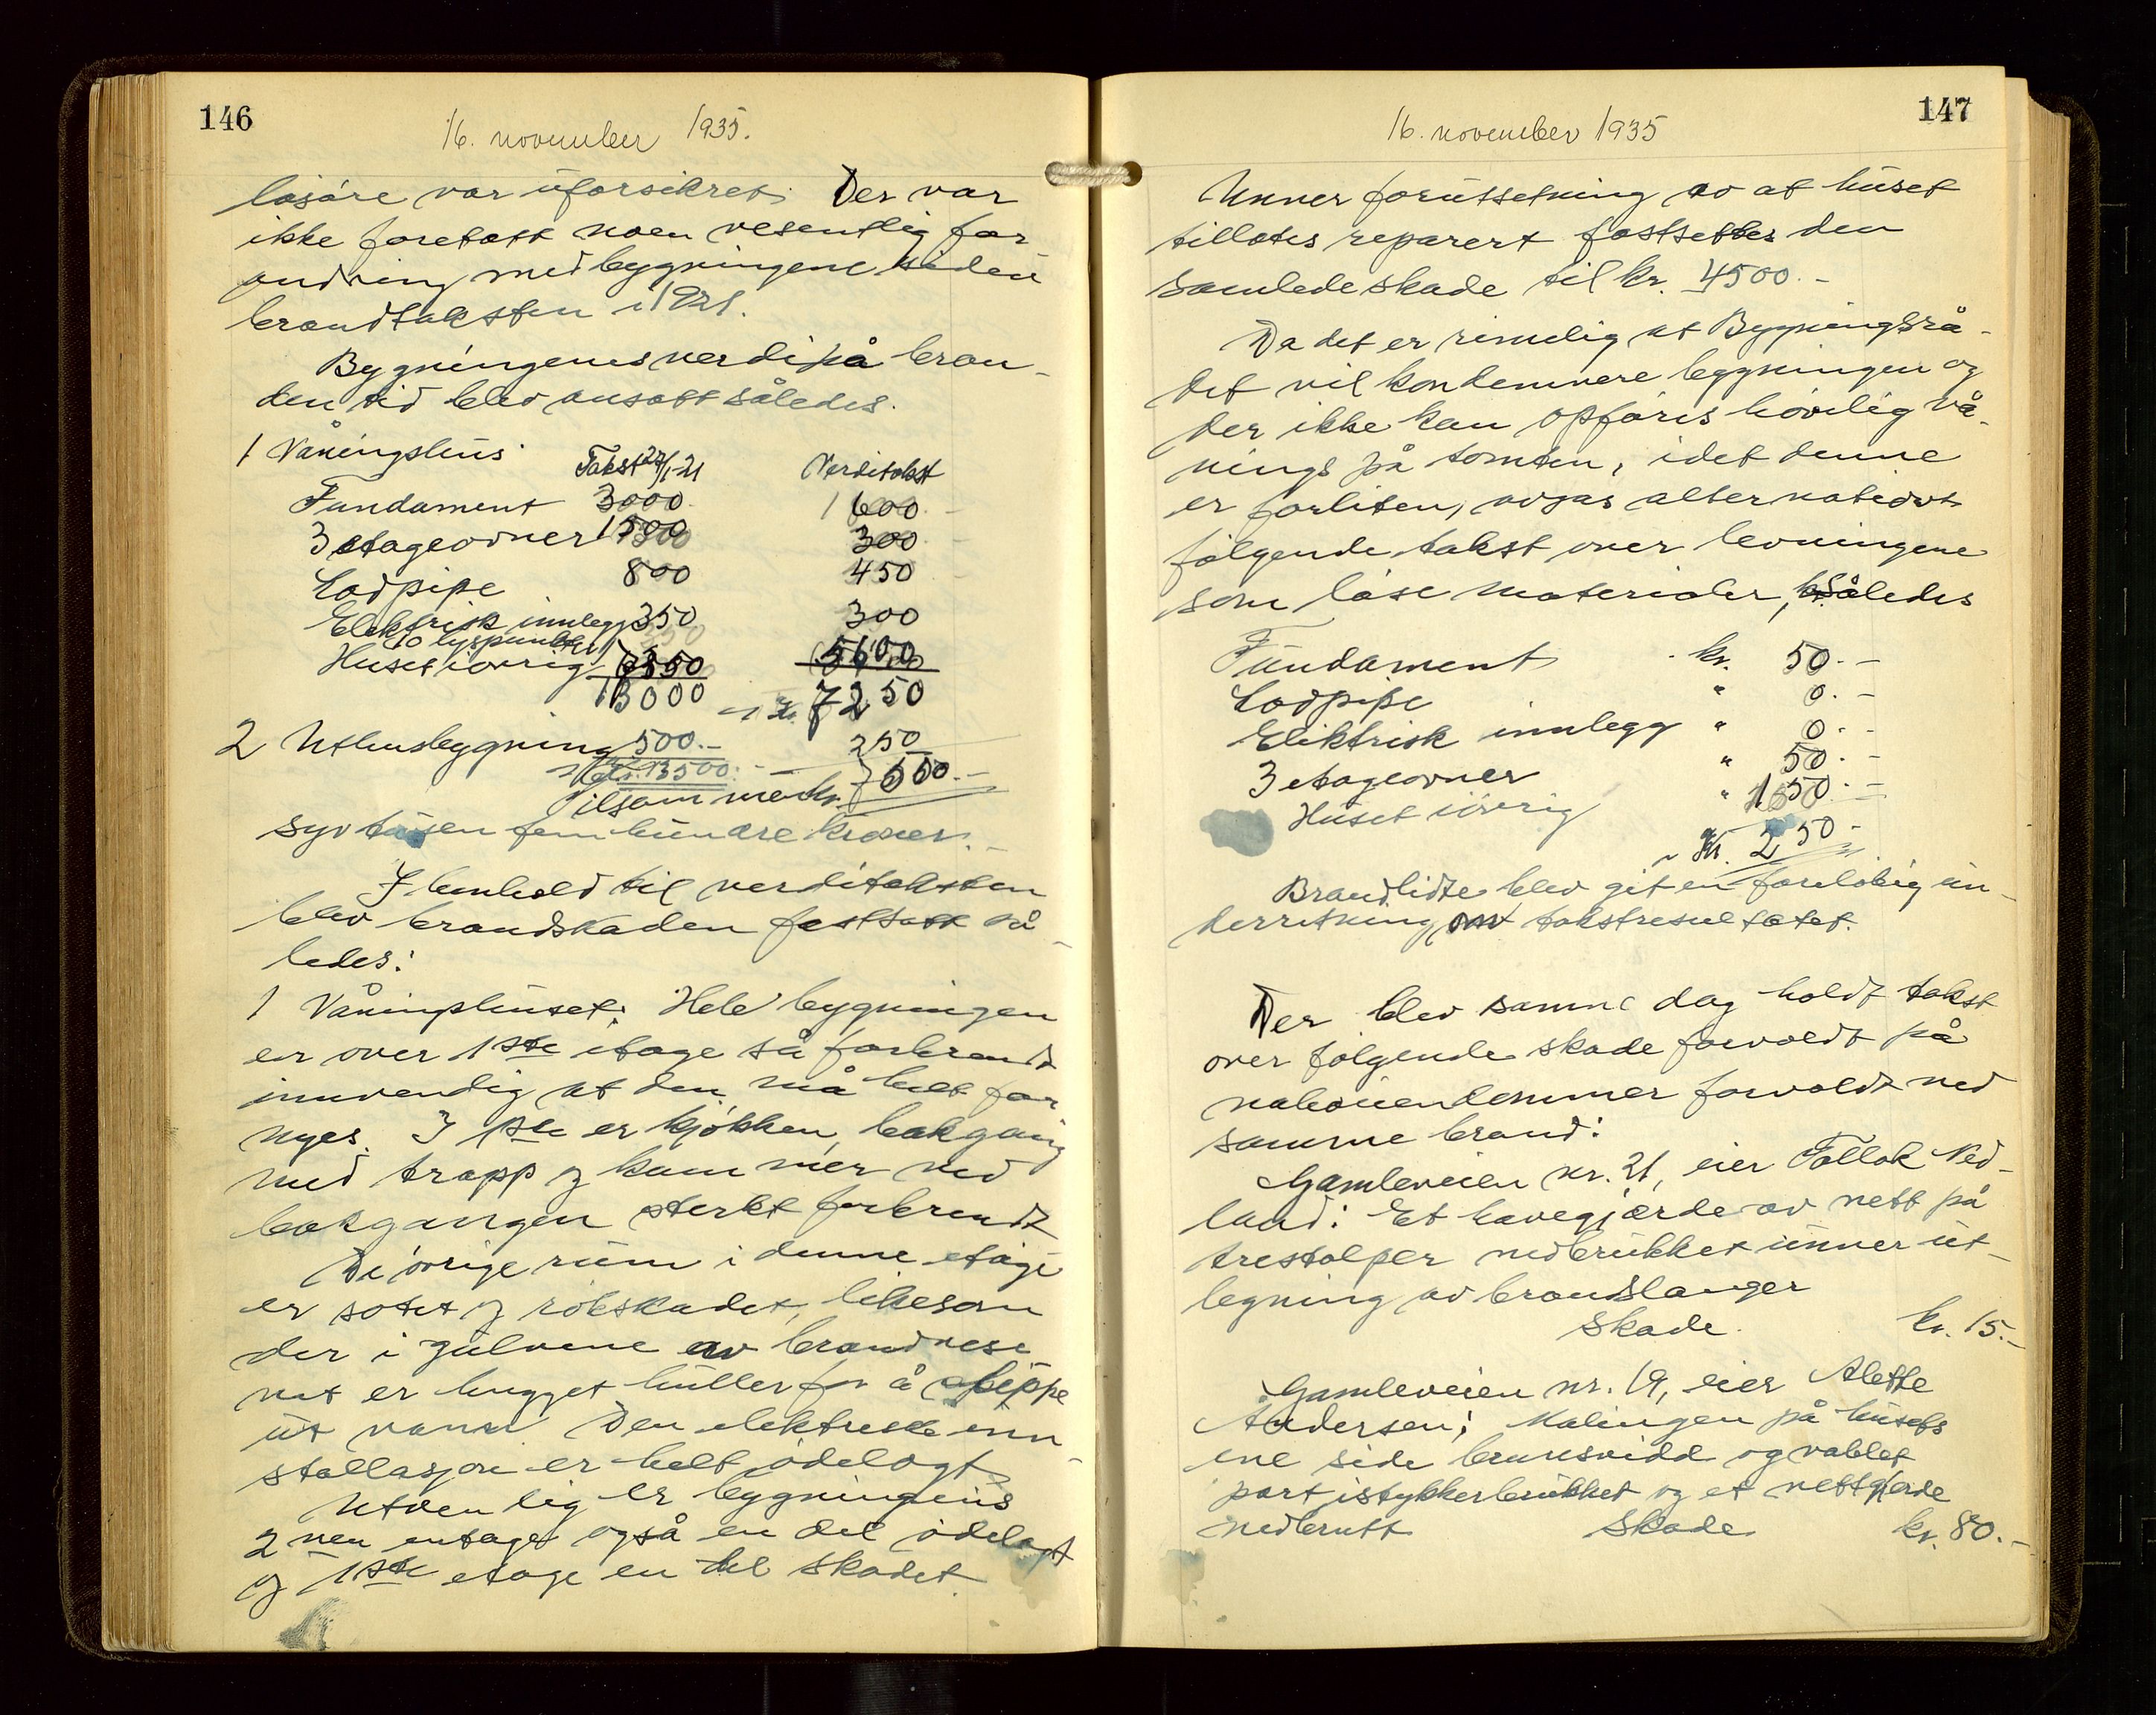 146
16. november 1935.
løsøre var uforsikret. Der var
ikke foretatt noen vesentlig for
andring med bygningene siden
brandtaksten i 1921.
Bygningenes verdi på bran-
dens tid blev ansatt således.
1 Våningshus Takst 27/1-21 Verditakst
Fundament 3000 600
3 etageovner 1500 300
Lodpipe 800 450
Elektrisk innlegg 350 300
10 lyspunkter
Huset iøvrig 7350 5600
13000 7250
2 Uthusbygning 500.- 250
kr. 13500.-
Tilsammen kr. 7500.-
syv tusen fem hundre kroner.
I henhold til verditaksten
blev brandskaden fastsatt så-
ledes:
1 Våningshuset: Hele bygningen
er over 1ste etage så forbrendt
innvendig at den må helt for
nyes. I 1ste er kjøkken, bakgang
med trapp og kammer ved
bakgangen sterkt forbrendt
De øvrige rum i denne etage
er sotet og røkskadet, likesom
der i gulvene av brandvese
net er hugget huller for å slippe
ut vann Den elektriske inn-
stallasjon er helt ødelagt
Utvendig er bygningens
2nen etage også en del ødelagt
og 1ste etage en del skadet.
147
16. november 1935
Unner forutsetning av at huset
tillates reparert fastsettes den
samlede skade til kr. 4500.-
Da det er rimelig at Bygningsrå-
det vil kondemnere bygningen og
der ikke kan opføres høvelig vå-
nings på tomten, idet denne
er forliten, avgas alternativt
følgende takst over levningene
som løse materialer, således
Fundament kr. 50.-
Lodpipe " 0.-
Elektrisk innlegg " 0.-
3 etageovner " 50.-
Huset iøvrig " 150.-
kr. 250.-
Brandlidte blev git en foreløbig un-
derretning om takstresultatet.
Der blev samme dag holdt takst
over følgende skade forvoldt på
naboeiendommer forvoldt ved
samme brand:
Gamleveien nr. 21, eier Tollak Ved-
land: Et havegjærde av nett på
trestolper nedbrukket unner ut-
legning av brandslanger
Skade kr. 15.-
Gamleveien nr. 19, eier Alette
Andersen; Malingen på husets
ene side brunsvidd og vablet
port istykkerbrukket og et nettgjerde
nedbrutt Skade kr. 80.-